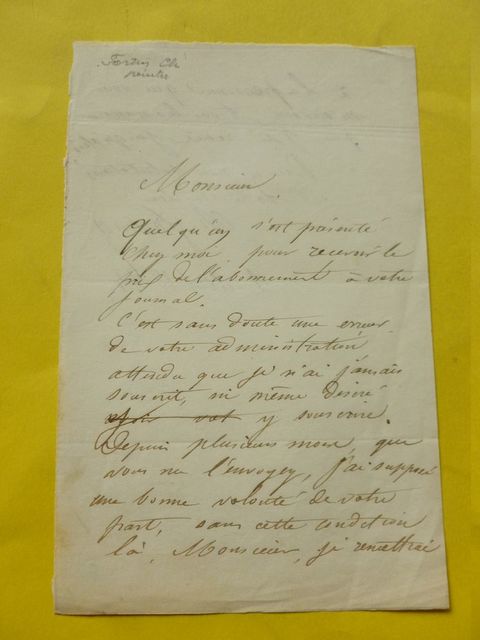 Fortin Ch
peintre
Monsieur
Quelqu'un s'est présenté
chez moi pour recevoir le
prix de l'abonnement à votre
journal.
C'est sans doute une erreur
de votre administration
attendu que je n'ai jamais
souscrit, ni même désiré
y souscrire.
Depuis plusieurs mois que
vous me l'envoyez, j'ai supposé
une bonne volonté de votre
part, sans cette condition
là, Monsieur, je remettrai